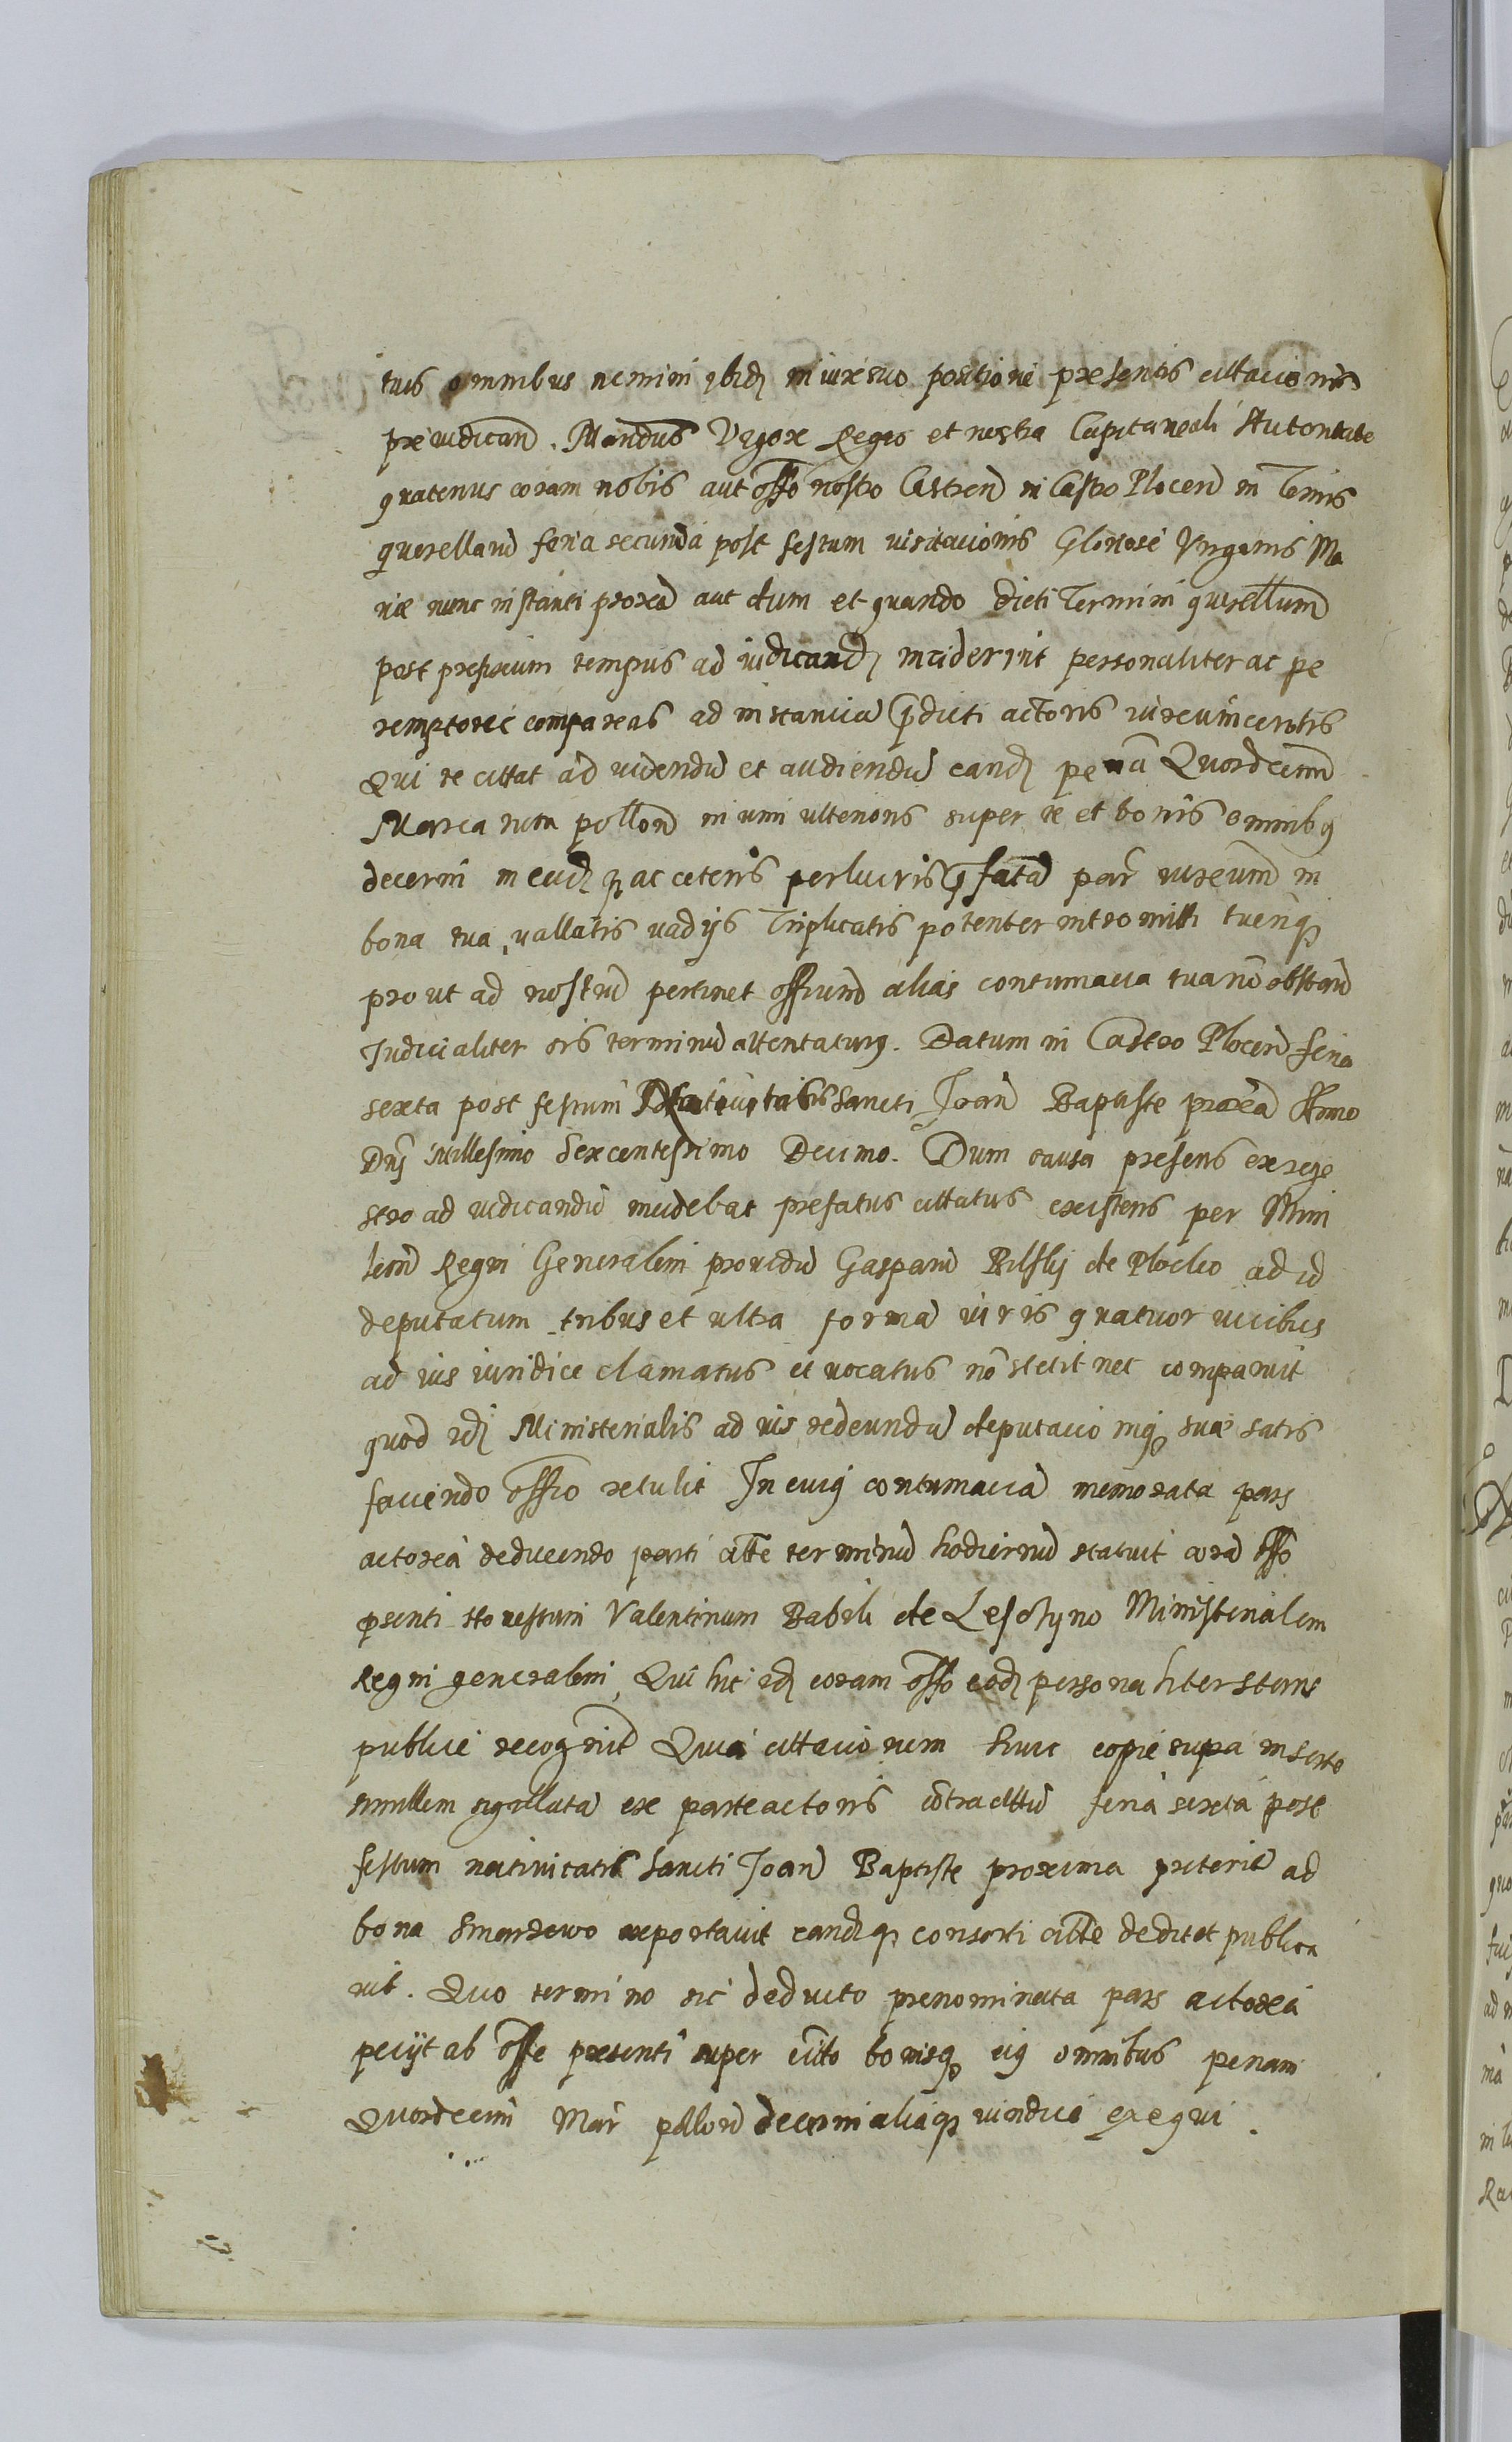 tuis omnibus nemini ibid in iure suo positione presentis cittacionis
preiudicand. Mandus Vigore Regio et nostra Capitaneali Autoritate
quatenus coram nobis aut offo nostro Castren in Castro Plocen in Terminis
querellarum feria secunda post festum visitacionis Gloriose Virginis Ma
rie nunc instanti proxa aut dum et quando dicti Termini querellarum
post prefixum tempus ad iudicand inciderint personaliter ac pe
remptorie compareas ad instancia pdicti actoris iurevincentis
Qui te cittat ad videndu et audiendu eand pena Quordecim
Marcarum pollon in vim ulterioris super te et bonis omnibq
decerni in eadq ac ceteris perlucris pfata par iurevin in
bona tua, vallatis vadijs Triplicatis potenter intromitti tueriq
prout ad nostru pertinet offium alias contumacia tua no obstan
Judicialiter ters terminu attentaturq. Datum in Castro Plocen feria
sexta post festum Natiuitatis Sancti Joan Baptiste proxa Anno
Dni Millesimo Sexcentesimo Decimo. Dum causa presens ex rege
stro ad iudicandu incidebat prefatus cittatus existens per Mini
lem Regni Generalem providu Gasparu Bilsky de Plocko ad id
deputatum tribus et ultra forma iuris quatuor vicibus
ad ius iuridice clamatus et vocatus no stetit nec comparuit
quod id Ministerialis ad ius redeundu deputacioniq sue satis
faciendo offio retulit In cuiq contumacia memorata pars
actorea deducendo parti citte terminu hodiernu statuit cora offo
psenti Honestum Valentinum Babili de Leschyno Ministerialem
Regni generalem, Qui hic id coram offo eod personaliter stans
publice recognit Quia cittacionem huic copie supra inserte
similem sigillata ex parte actoris contra cittu feria sexta post
festum nativitatis Sancti Joan Baptiste proxima preterit ad
bona Smarzewo reportavit eandq consorti citte dedit et publica
vit. Quo termino sic deducto prenominata pars actorea
pecijt ab offo presenti super citto bonisq eiq omnibus penam
Quordecim Mar pollon decerni aliaq iuridice exequi.